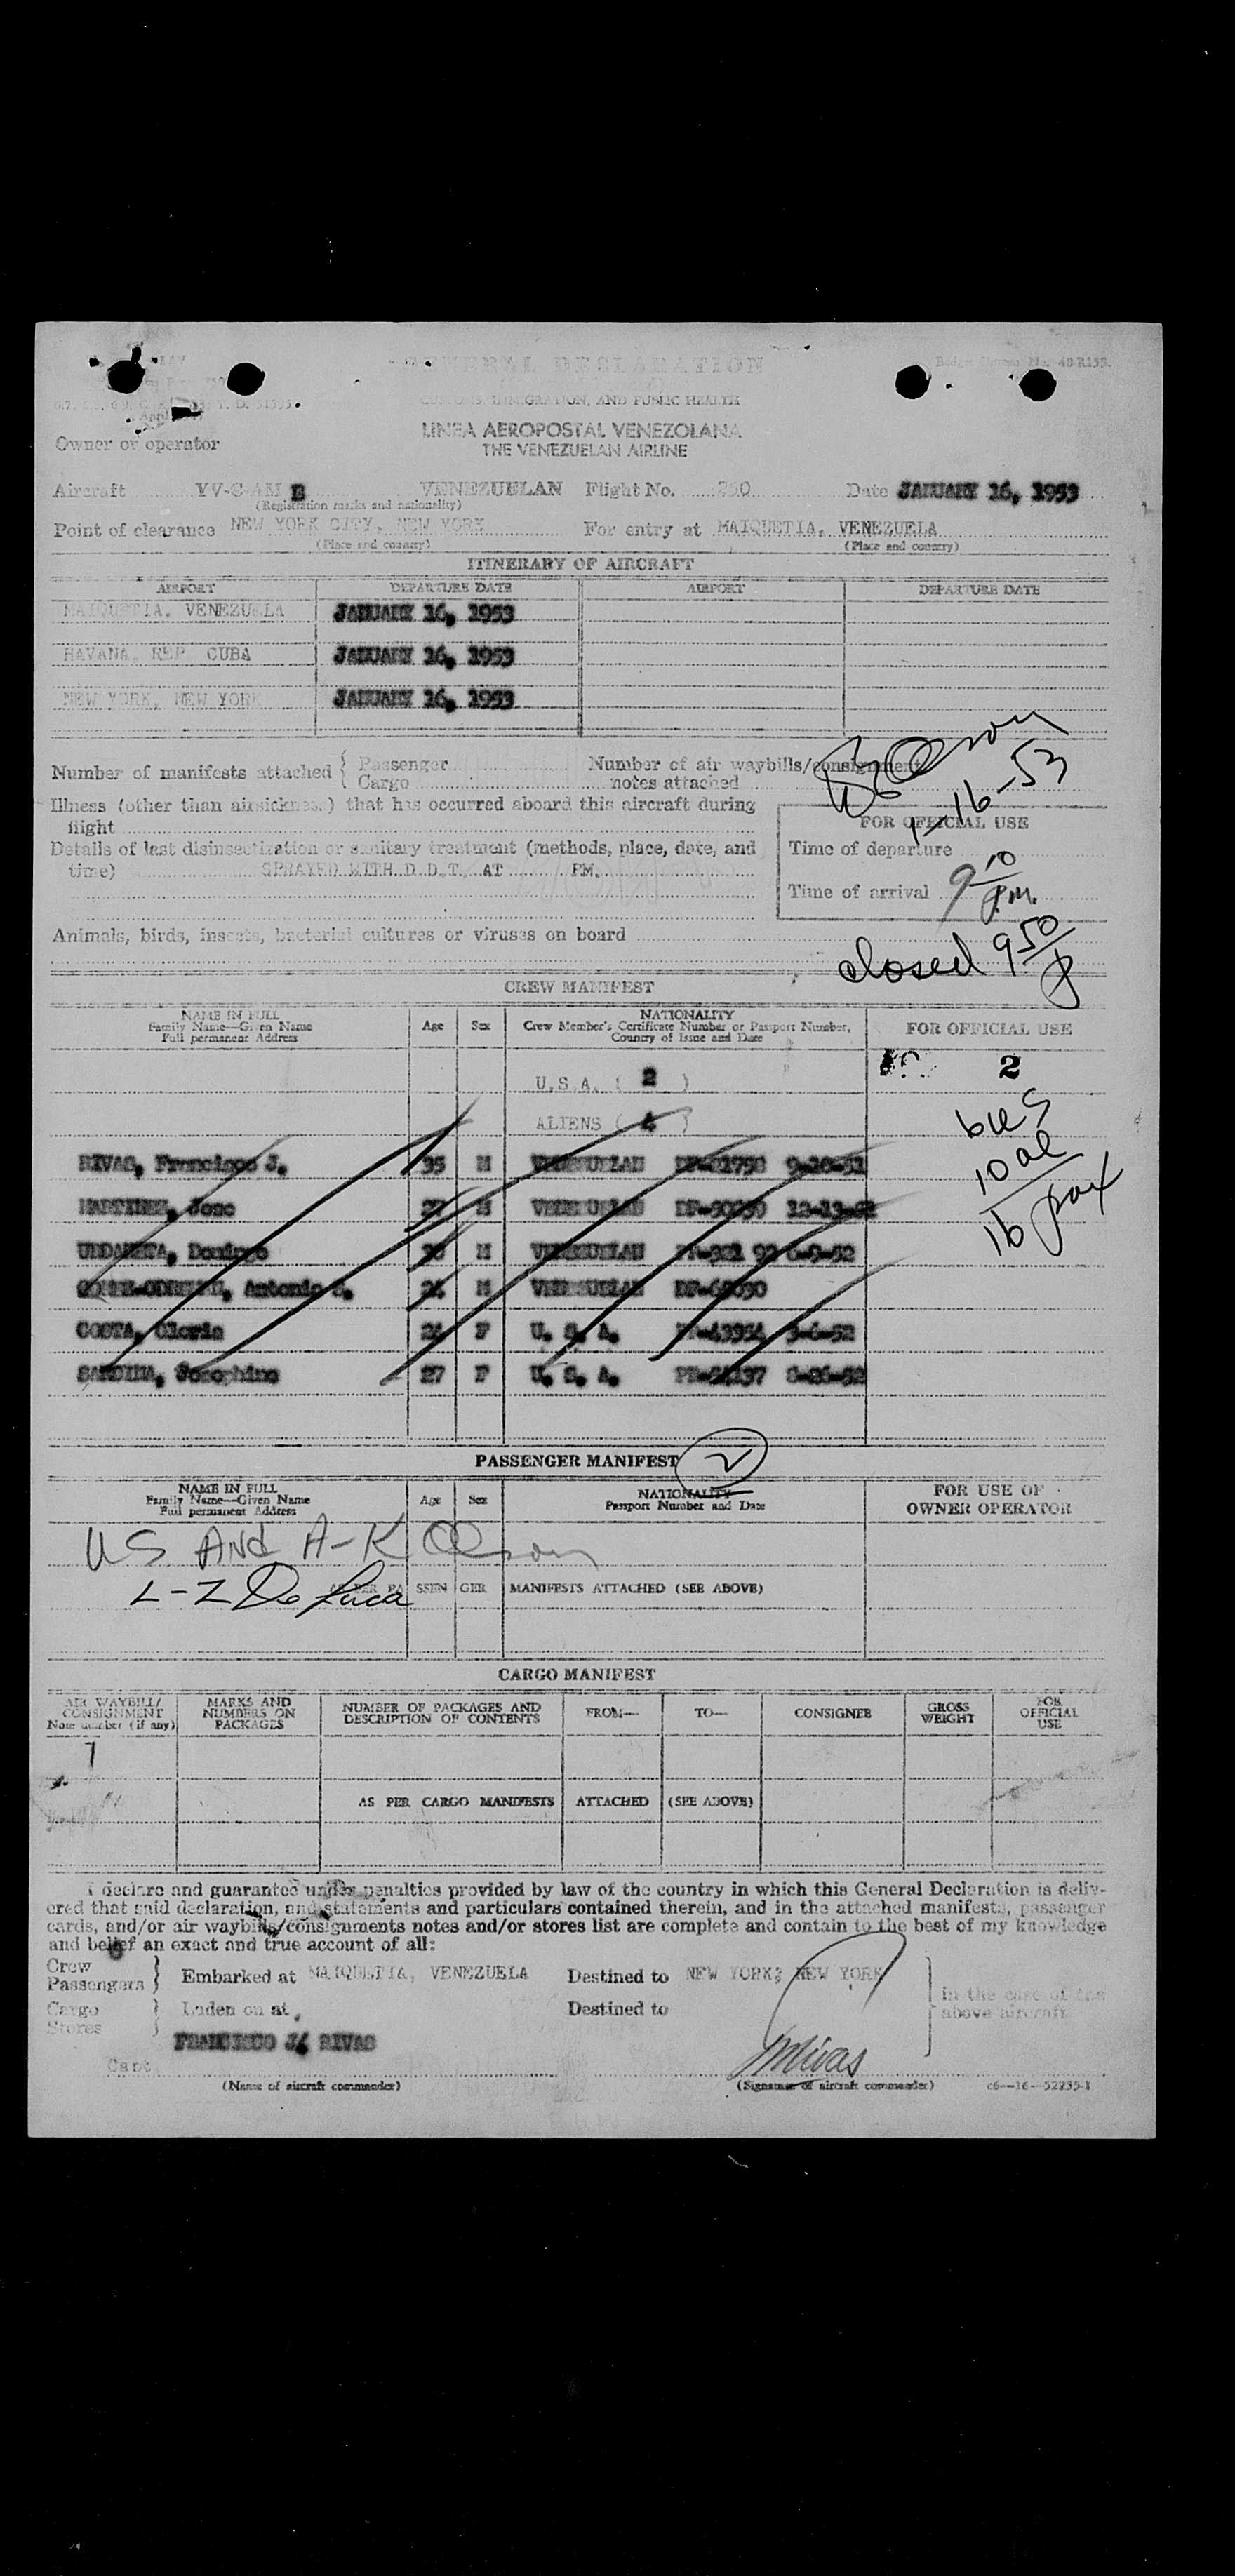 GENERAL DECLARATION
CUSTOMS, IMMIGRATION, AND PUBLIC HEALTH
LINEA AEROPOSTAL VENEZOLANA
THE VENEZUELAN AIRLINE
Owner or operator
Aircraft YV-C-AM VENEZUELAN Flight No. 250 Date JANUARY 16, 1953
(Registration marks and nationality)
Point of clearance NEW YORK CITY, NEW YORK For entry at MAIQUETIA, VENEZUELA
(Place and country) (Place and country)
ITINERARY OF AIRCRAFT
AIRPORT DEPARTURE DATE AIRPORT DEPARTURE DATE
MAIQUETIA, VENEZUELA JANUARY 16, 1953
HAVANA, REP. CUBA JANUARY 16, 1953
NEW YORK, NEW YORK JANUARY 16, 1953
Number of manifests attached { Passenger Number of air waybills/consignment
Cargo notes attached
1-16-53
Illness (other than airsickness) that has occurred aboard this aircraft during
flight
FOR OFFICIAL USE
Details of last disinsectization or sanitary treatment (methods, place, date, and
time) SPRAYED WITH D.D.T. AT PM.
Time of departure
Time of arrival 9 10 P.M.
Animals, birds, insects, bacterial cultures or viruses on board
closed 9 50 P
CREW MANIFEST
NAME IN FULL Age Sex NATIONALITY FOR OFFICIAL USE
Family Name—Given Name Crew Member's Certificate Number or Passport Number,
Full permanent Address Country of Issue and Date
2
U.S.A. ( 2 )
ALIENS ( 4 )
6 US
10 al
16 pax
RIVAS, Francisco J. 35 M VENEZUELAN
MARTINEZ, Jose M VENEZUELAN
URDANETA, Domingo M VENEZUELAN
Antonio M VENEZUELAN
COSTA, Gloria F U. S. A.
Josephine 27 F U. S. A.
PASSENGER MANIFEST 2
NAME IN FULL Age Sex NATIONALITY FOR USE OF
Family Name—Given Name Passport Number and Date OWNER OPERATOR
Full permanent Address
US And A-K Olson
L-Z De Luca
AS PER PASSENGER MANIFESTS ATTACHED (SEE ABOVE)
CARGO MANIFEST
AIR WAYBILL/ MARKS AND NUMBER OF PACKAGES AND FROM— TO— CONSIGNEE GROSS FOR
CONSIGNMENT NUMBERS ON DESCRIPTION OF CONTENTS WEIGHT OFFICIAL
Note number (if any) PACKAGES USE
7
AS PER CARGO MANIFESTS ATTACHED (SEE ABOVE)
I declare and guarantee under penalties provided by law of the country in which this General Declaration is deliv-
ered that said declaration, and statements and particulars contained therein, and in the attached manifests, passenger
cards, and/or air waybills/consignments notes and/or stores list are complete and contain to the best of my knowledge
and belief an exact and true account of all:
Crew
Passengers } Embarked at MAIQUETIA, VENEZUELA Destined to NEW YORK, NEW YORK
Cargo
Stores } Laden on at Destined to
In the case of the
above aircraft
FRANCISCO J. RIVAS
Capt
(Name of aircraft commander) (Signature of aircraft commander) c6—16—52235-1